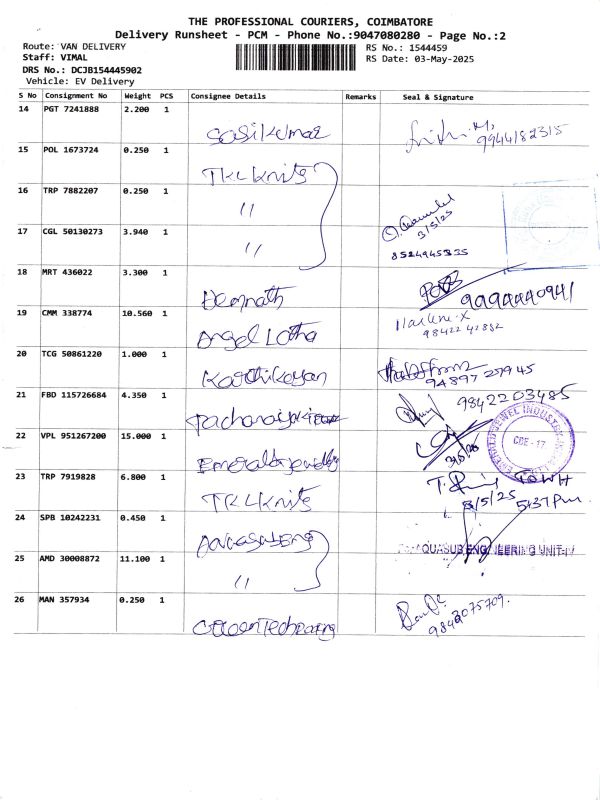 THE PROFESSIONAL COURIERS, COIMBATORE
Delivery Runsheet - PCM - Phone No.:9047080280 - Page No.:2
Route: VAN DELIVERY
RS No.: 1544459
Staff: VIMAL
RS Date: 03-May-2025
DRS No.: DCJB154445902
Vehicle: EV Delivery
S No Consignment No Weight PCS Consignee Details Remarks Seal & Signature
14 PGT 7241888 2.200 1
Sasikumar 9944182315
15 POL 1673724 0.250 1
TKL Knits
16 TRP 7882207 0.250 1
"
3/5/25
17 CGL 50130273 3.940 1
"
8524945335
18 MRT 436022 3.300 1
Hemnath 9994440941
19 CMM 338774 10.560 1
Angel Lotha
Harlene-X
9842242882
20 TCG 50861220 1.000 1
Karthikeyan
9489725945
21 FBD 115726684 4.350 1
9842203485
22 VPL 951267200 15.000 1
Emerald Jewellry
3/5/25
EMERALD JEWEL INDUSTRY
CBE - 17
23 TRP 7919828 6.800 1
TKL Knits
3/5/25 5:37 Pm
24 SPB 10242231 0.450 1
AQUASUB ENGINEERING UNIT-IV
25 AMD 30008872 11.100 1
"
26 MAN 357934 0.250 1
9842075709.